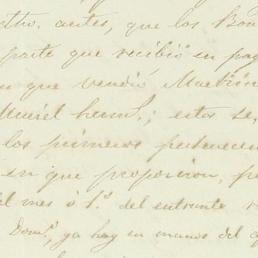 antes, que los Bon
parte que recibió en pag
en que vendió Martín
Muriel herm.s; estos se
los primeros pertenecen
en que proporcion, p
el mes ó 1.º del entrante
Dom.º, ya hay en manos del